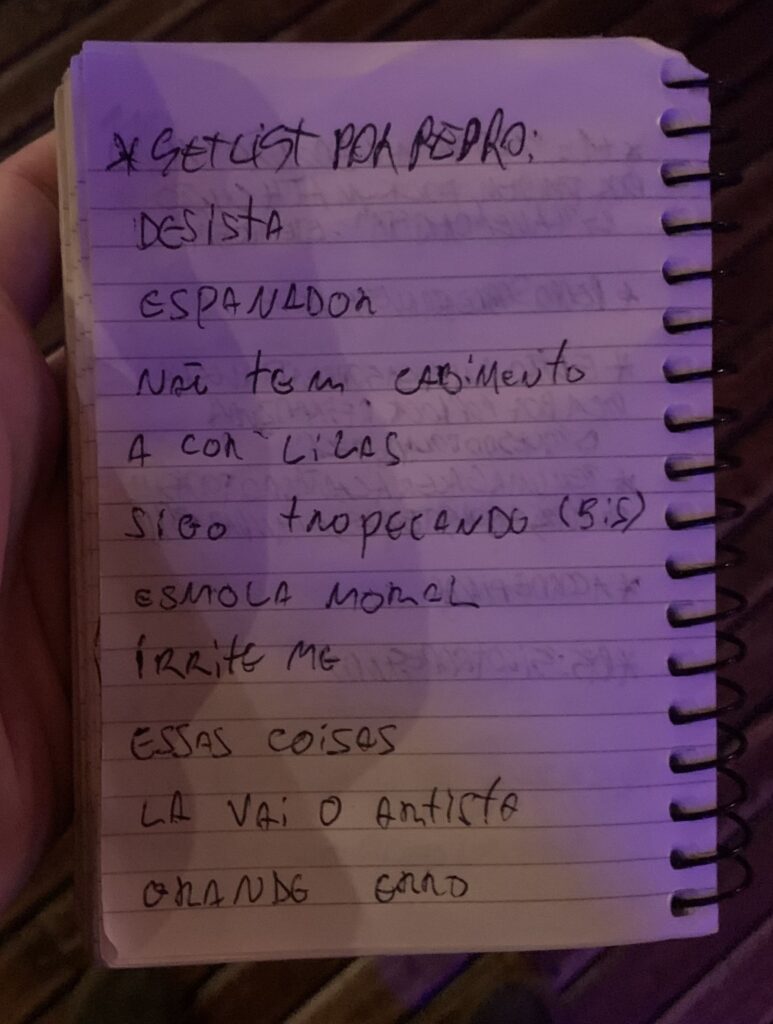 * SETLIST POR PEDRO:
DESISTA
ESPANADOR
NÃO TEM CABIMENTO
A COR LILAS
SIGO TROPECANDO (BIS)
ESMOLA MORAL
IRRITE ME
ESSAS COISAS
LA VAI O ARTISTA
GRANDE ERRO